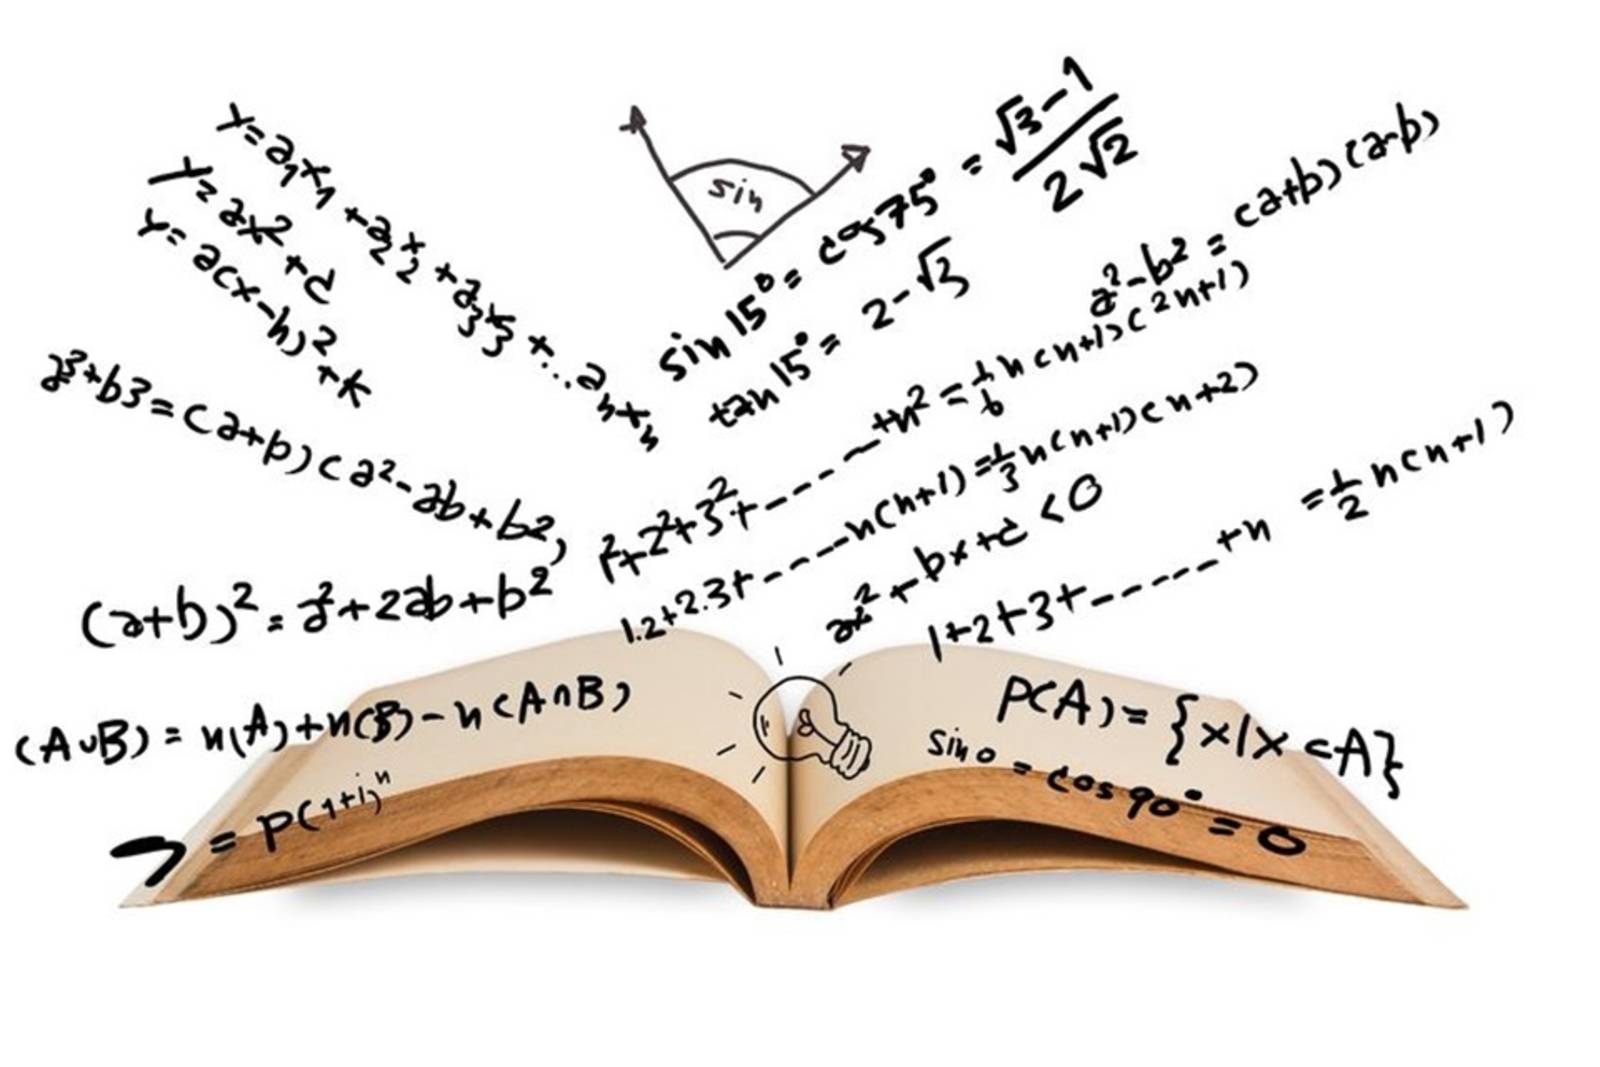 x=a₁x₁+a₂x₂+a₃x₃+...aₙxₙ
y=ax²+c
y=a(x-h)²+k
sin
sin15°=cos75°=√3-1/2√2
tan15°=2-√3
a²-b²=(a+b)(a-b)
a³+b3=(a+b)(a²-ab+b2,
1²+2²+3²+------+n²=1/6n(n+1)(2n+1)
1.2+2.3+-----n(n+1)=1/3n(n+1)(n+2)
ax²+bx+c<0
1+2+3+------+n=1/2n(n+1)
(a+b)²=a²+2ab+b²
(A∪B)=n(A)+n(B)-n(A∩B)
P(A)={x|x⊂A}
sin0=cos90°=0
=P(1+i)ⁿ